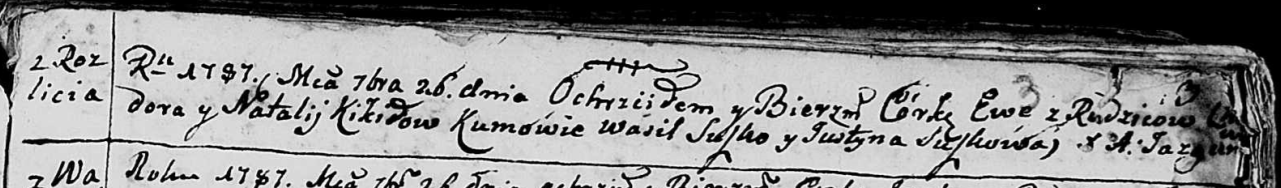 z Roz
licia
Ru 1787. Mca 7bra 26. dnia Ochrzciłem y Bierzm Corkę Ewe z Rodzicow
dora y Natalij Kikiłow Kumowie Wasil Susko y Justyna Suskowa) X A. Jazgun
z Wa
Roku 1787. Mca 7br 26 dnia